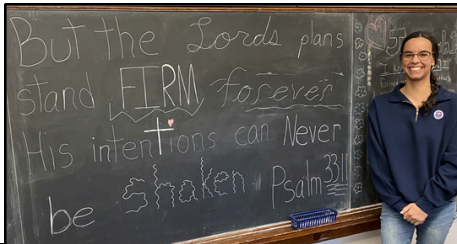 But the Lords plans
stand FIRM forever
His intentions can Never
be shaken Psalm 33:11